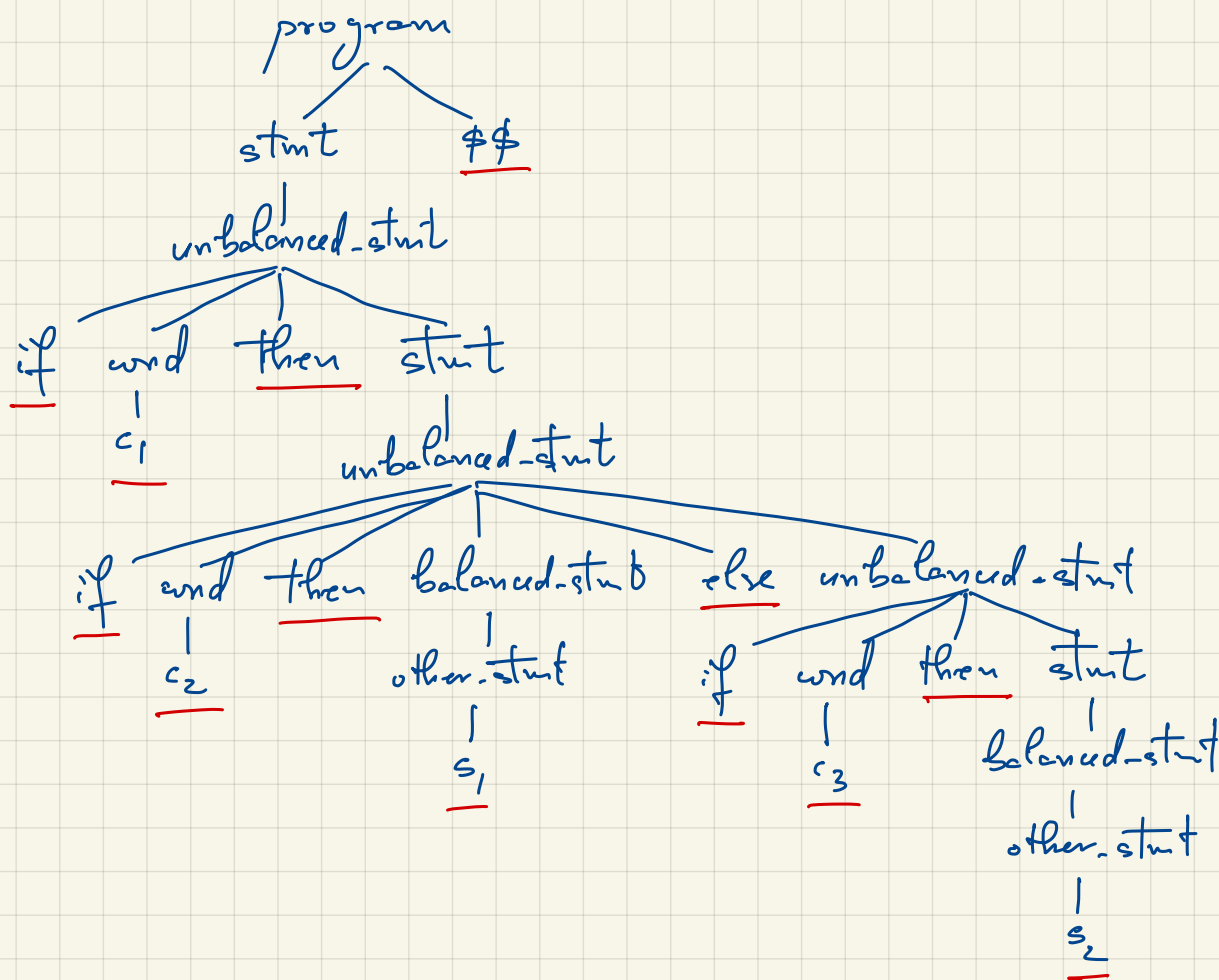 program
stmt $$
unbalanced_stmt
if cond then stmt
c1
unbalanced_stmt
if cond then balanced_stmt else unbalanced_stmt
c2 other_stmt if cond then stmt
s1 c3 balanced_stmt
other_stmt
s2